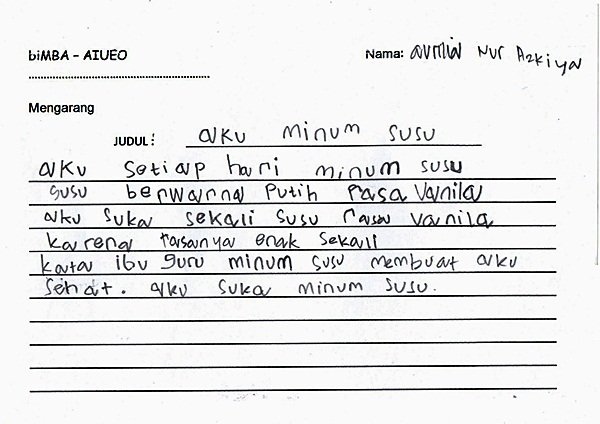 biMBA - AIUEO
Nama: aurnia Nur Azkiya
Mengarang
JUDUL: aku minum susu
aku setiap hari minum susu
susu berwarna Putih rasa Vanila
aku suka sekali susu rasa vanila
karena rasanya enak sekali
kata ibu guru minum susu membuat aku
sehat. aku suka minum susu.